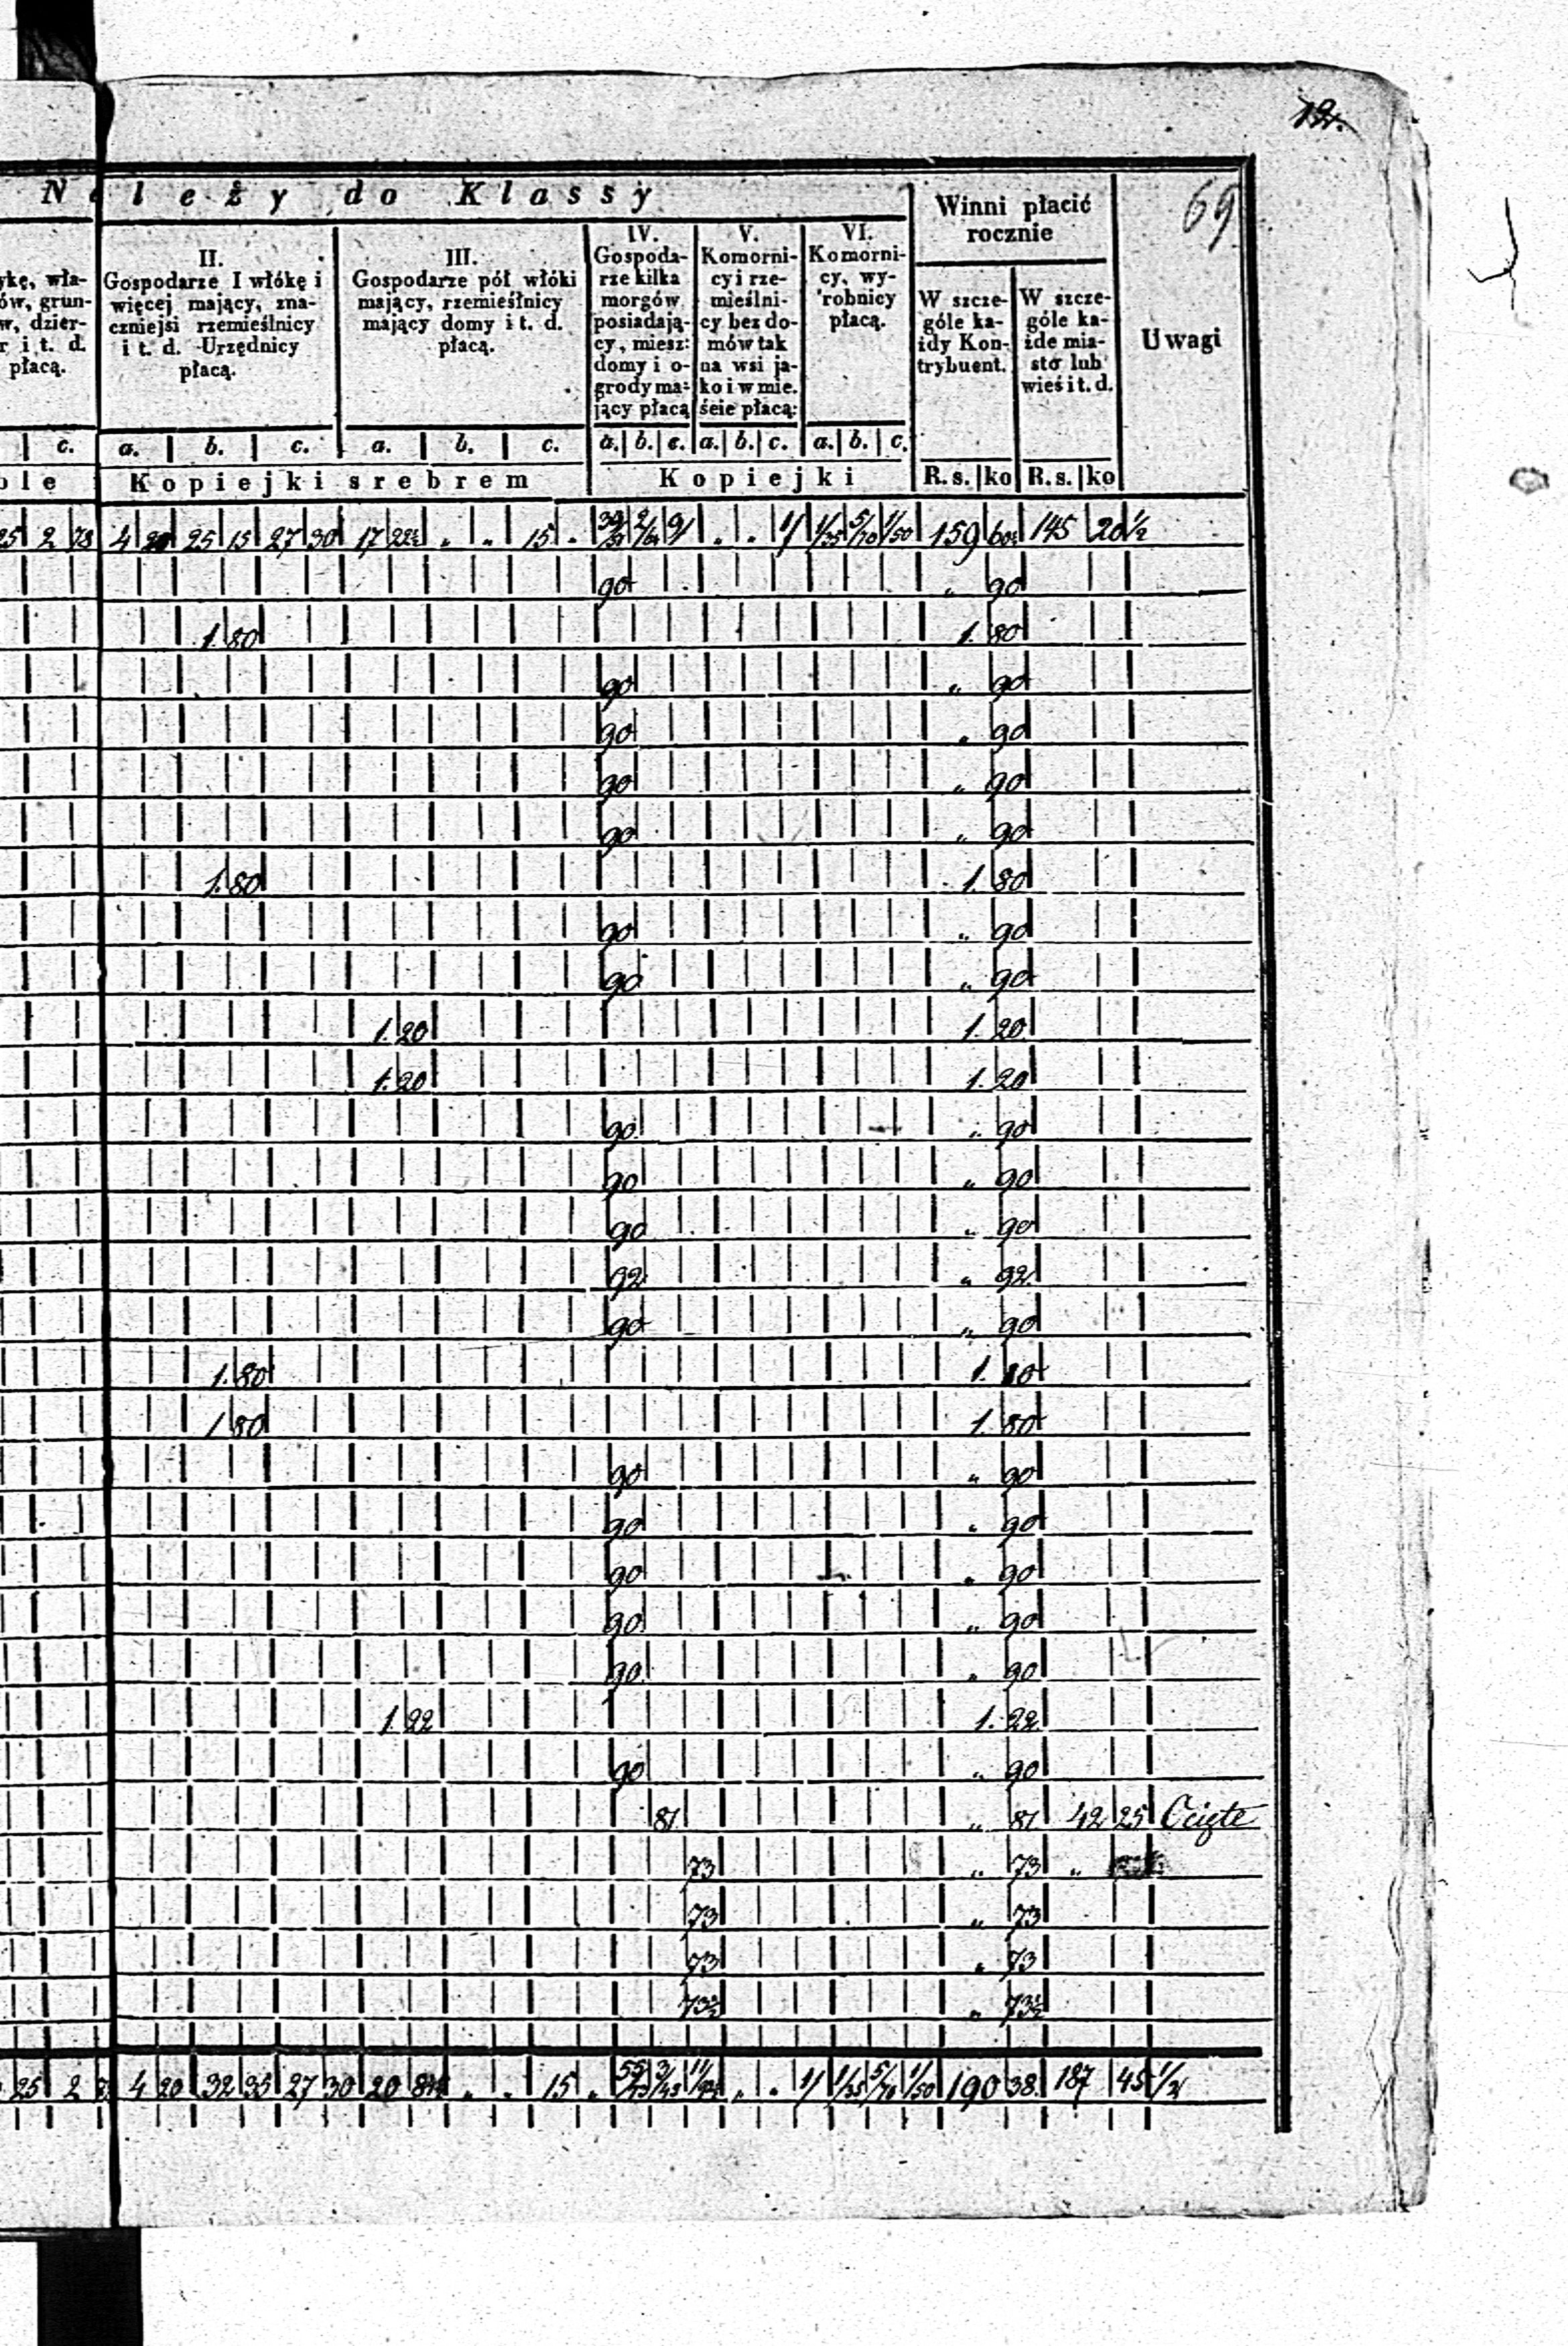 12.
69
Należy do Klassy
Winni płacić rocznie
Uwagi
ykę, wła-
ów, grun-
w, dzier-
r i t. d.
płacą.
II.
Gospodarze I włókę i
więcej mający, zna-
czniejsi rzemieślnicy
i t. d. Urzędnicy
płacą.
III.
Gospodarze pół włóki
mający, rzemieślnicy
mający domy i t. d.
płacą.
IV.
Gospoda-
rze kilka
morgów
posiadają-
cy, miesz:
domy i o-
grody ma-
jący płacą
V.
Komorni-
cy i rze-
mieślni-
cy bez do-
mów tak
na wsi ja-
ko i w mie.
ście płacą:
VI.
Komorni-
cy, wy-
robnicy
płacą.
W szcze-
góle ka-
idy Kon-
trybuent.
W szcze-
góle ka-
żde mia-
sto lub
wieś i t. d.
c. a. b. c. a. b. c. a. b. c. a. b. c. a. b. c.
ole Kopiejki srebrem Kopiejki R.s. ko R.s. ko
25 2 73 4 20 25 15 27 30 17 22½ " " 15 " 2/61 9/ " " 1/ 1/35 5/70 1/50 159 145 20½
90 " 90
1. 80 1. 80
90 " 90
90 " 90
90 " 90
90 " 90
1. 80 1. 80
90 " 90
90 " 90
1. 20 1. 20
1. 20 1. 20
90 " 90
90 " 90
90 " 90
92 " 92
90 " 90
1. 80 1. 80
1 80 1. 80
90 " 90
90 " 90
90 " 90
90 " 90
90 " 90
1. 22 1. 22
90 " 90
81 " 81 42 25 Ociąte
73 " 73 "
73 " 73
73 " 73
73½ " 73½
25 2 4 20 32 35 27 30 20 " " 15 " " " 1/ 1/35 5/70 1/50 190 38 187 45 ½